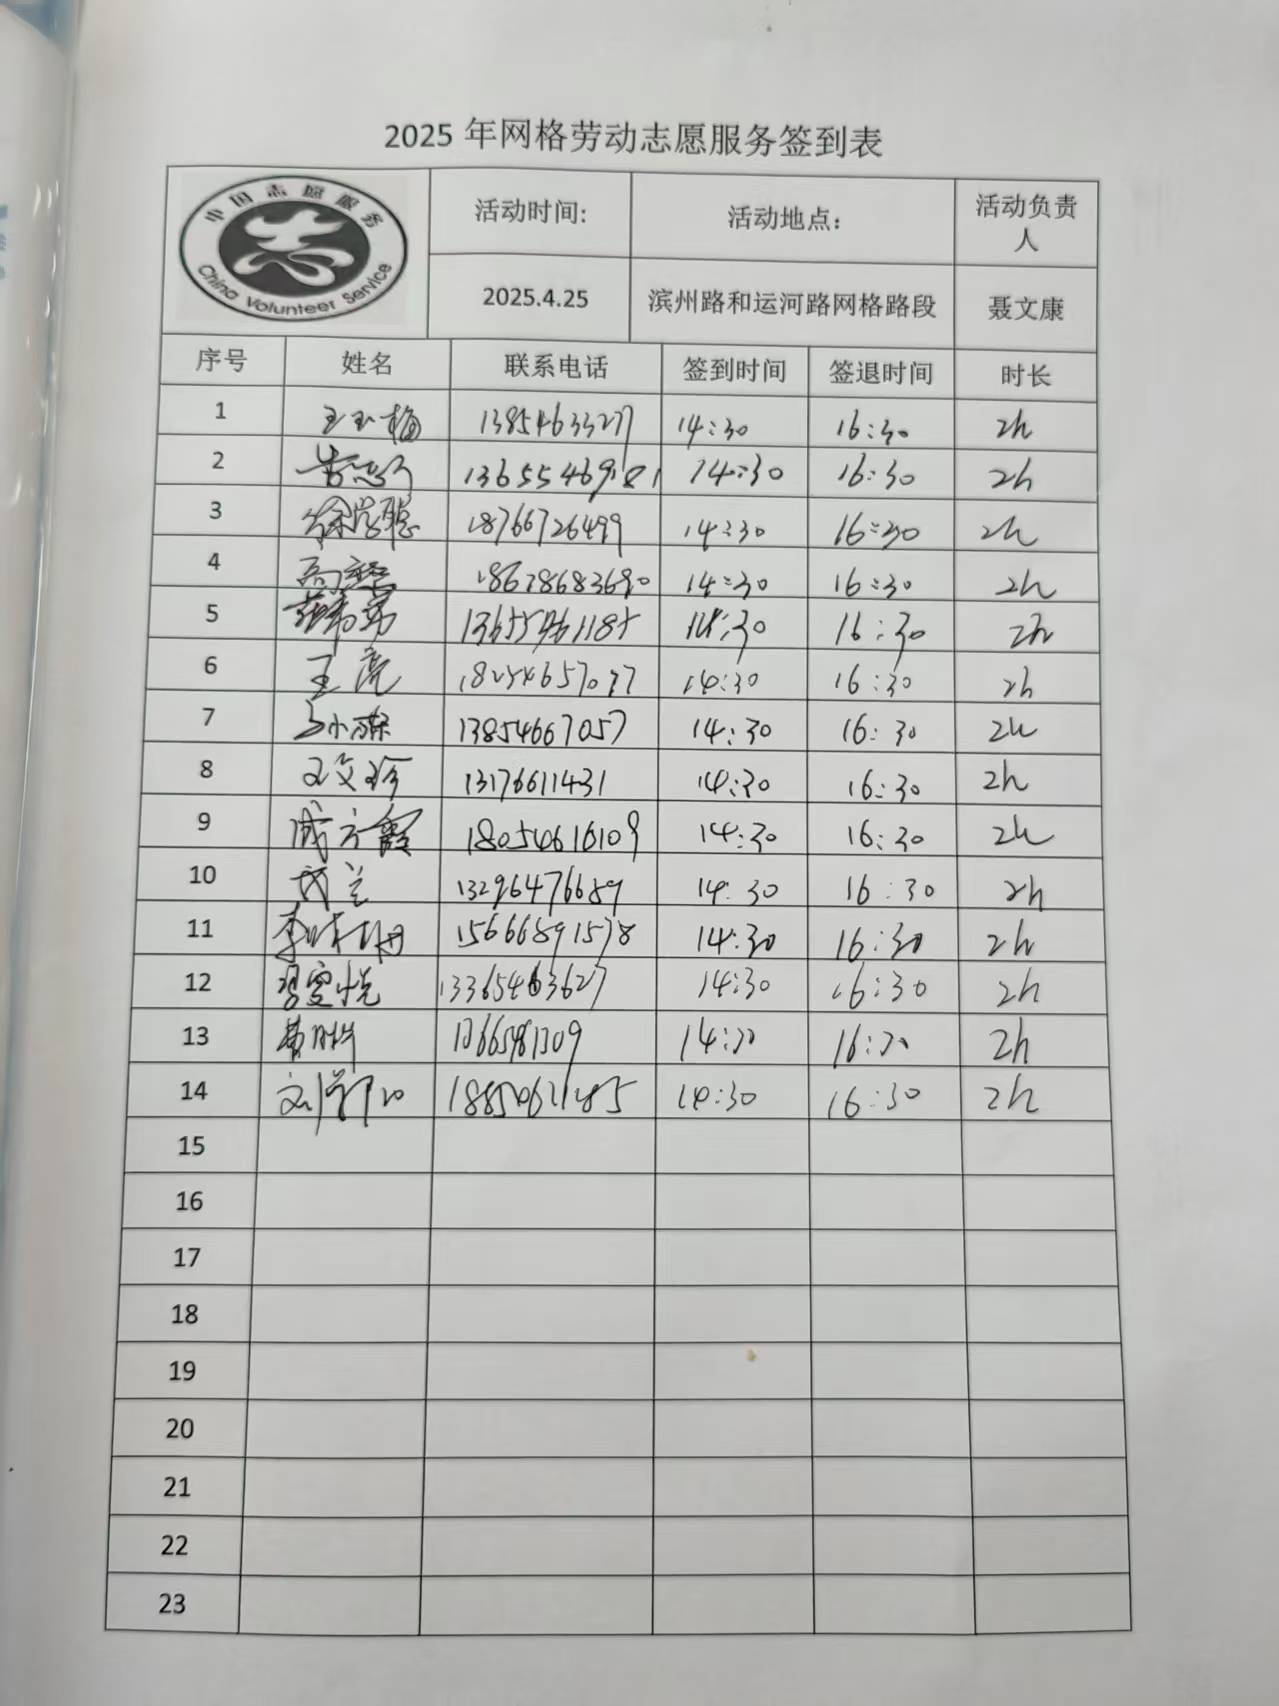 2025 年网格劳动志愿服务签到表
中国志愿服务
China Volunteer Service
活动时间: 活动地点: 活动负责人
2025.4.25 滨州路和运河路网格路段 聂文康
序号 姓名 联系电话 签到时间 签退时间 时长
1 王玉梅 13854633277 14:30 16:30 2h
2 14:30 16:30 2h
3 18766726499 14:30 16:30 2h
4 14:30 16:30 2h
5 14:30 16:30 2h
6 王亮 14:30 16:30 2h
7 13854667057 14:30 16:30 2h
8 王文珍 13176611431 14:30 16:30 2h
9 成方霞 18054616109 14:30 16:30 2h
10 13296476689 14:30 16:30 2h
11 15666891578 14:30 16:30 2h
12 13365463627 14:30 16:30 2h
13 14:30 16:30 2h
14 14:30 16:30 2h
15
16
17
18
19
20
21
22
23